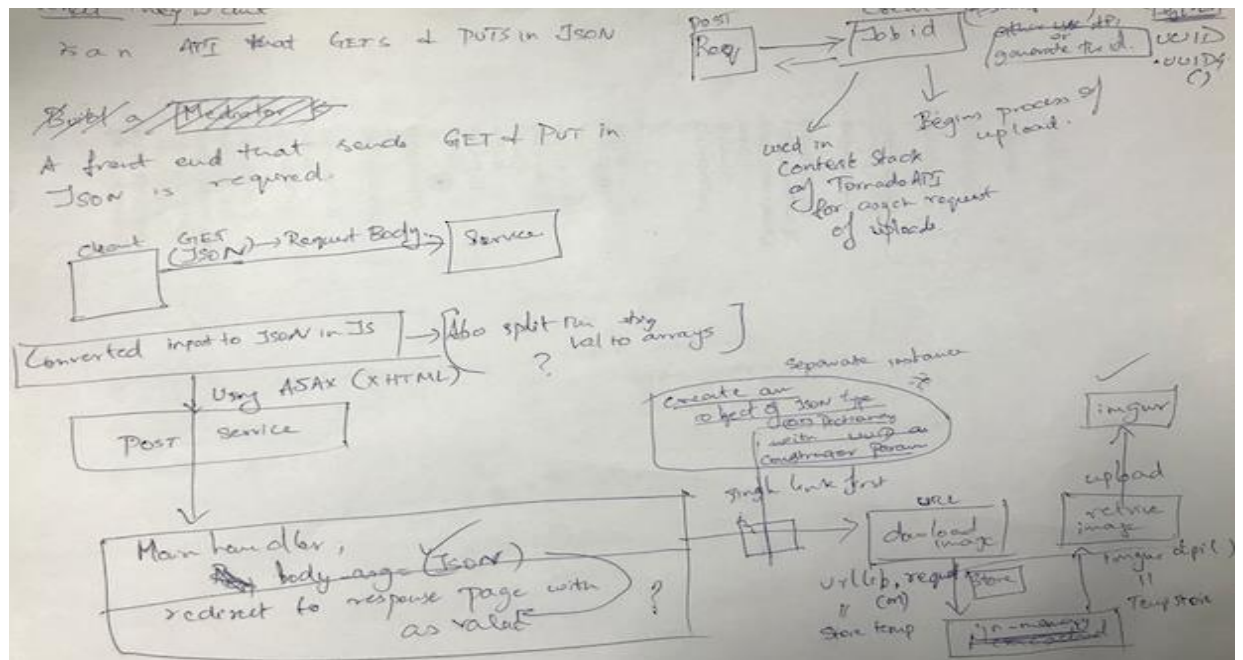 is an API that GETS & PUTS in JSON
Build a Mediator
A front end that sends GET & PUT in
JSON is required.
Client
GET
(JSON) → Request Body
Service
Converted input to JSON in JS
Also split the string
val to arrays
?
Using AJAX (XHTML)
POST service
Main handler,
body_arg= (JSON)
redirect to response page with
as value
?
POST
Req
Job id
or
generate the id.
UUID
.UUID4
()
used in
Context Stack
of TornadoAPI
for asynch request
of uploads
Begins process of
upload.
separate instance
create an
object of JSON type
Dictionary
with UUID as
constructor param
single link first
URL
download
image
urllib, request
(or)
"
Store temp
Store
in-memory
retrive
image
upload
imgur
imgur api()
"
Temp store